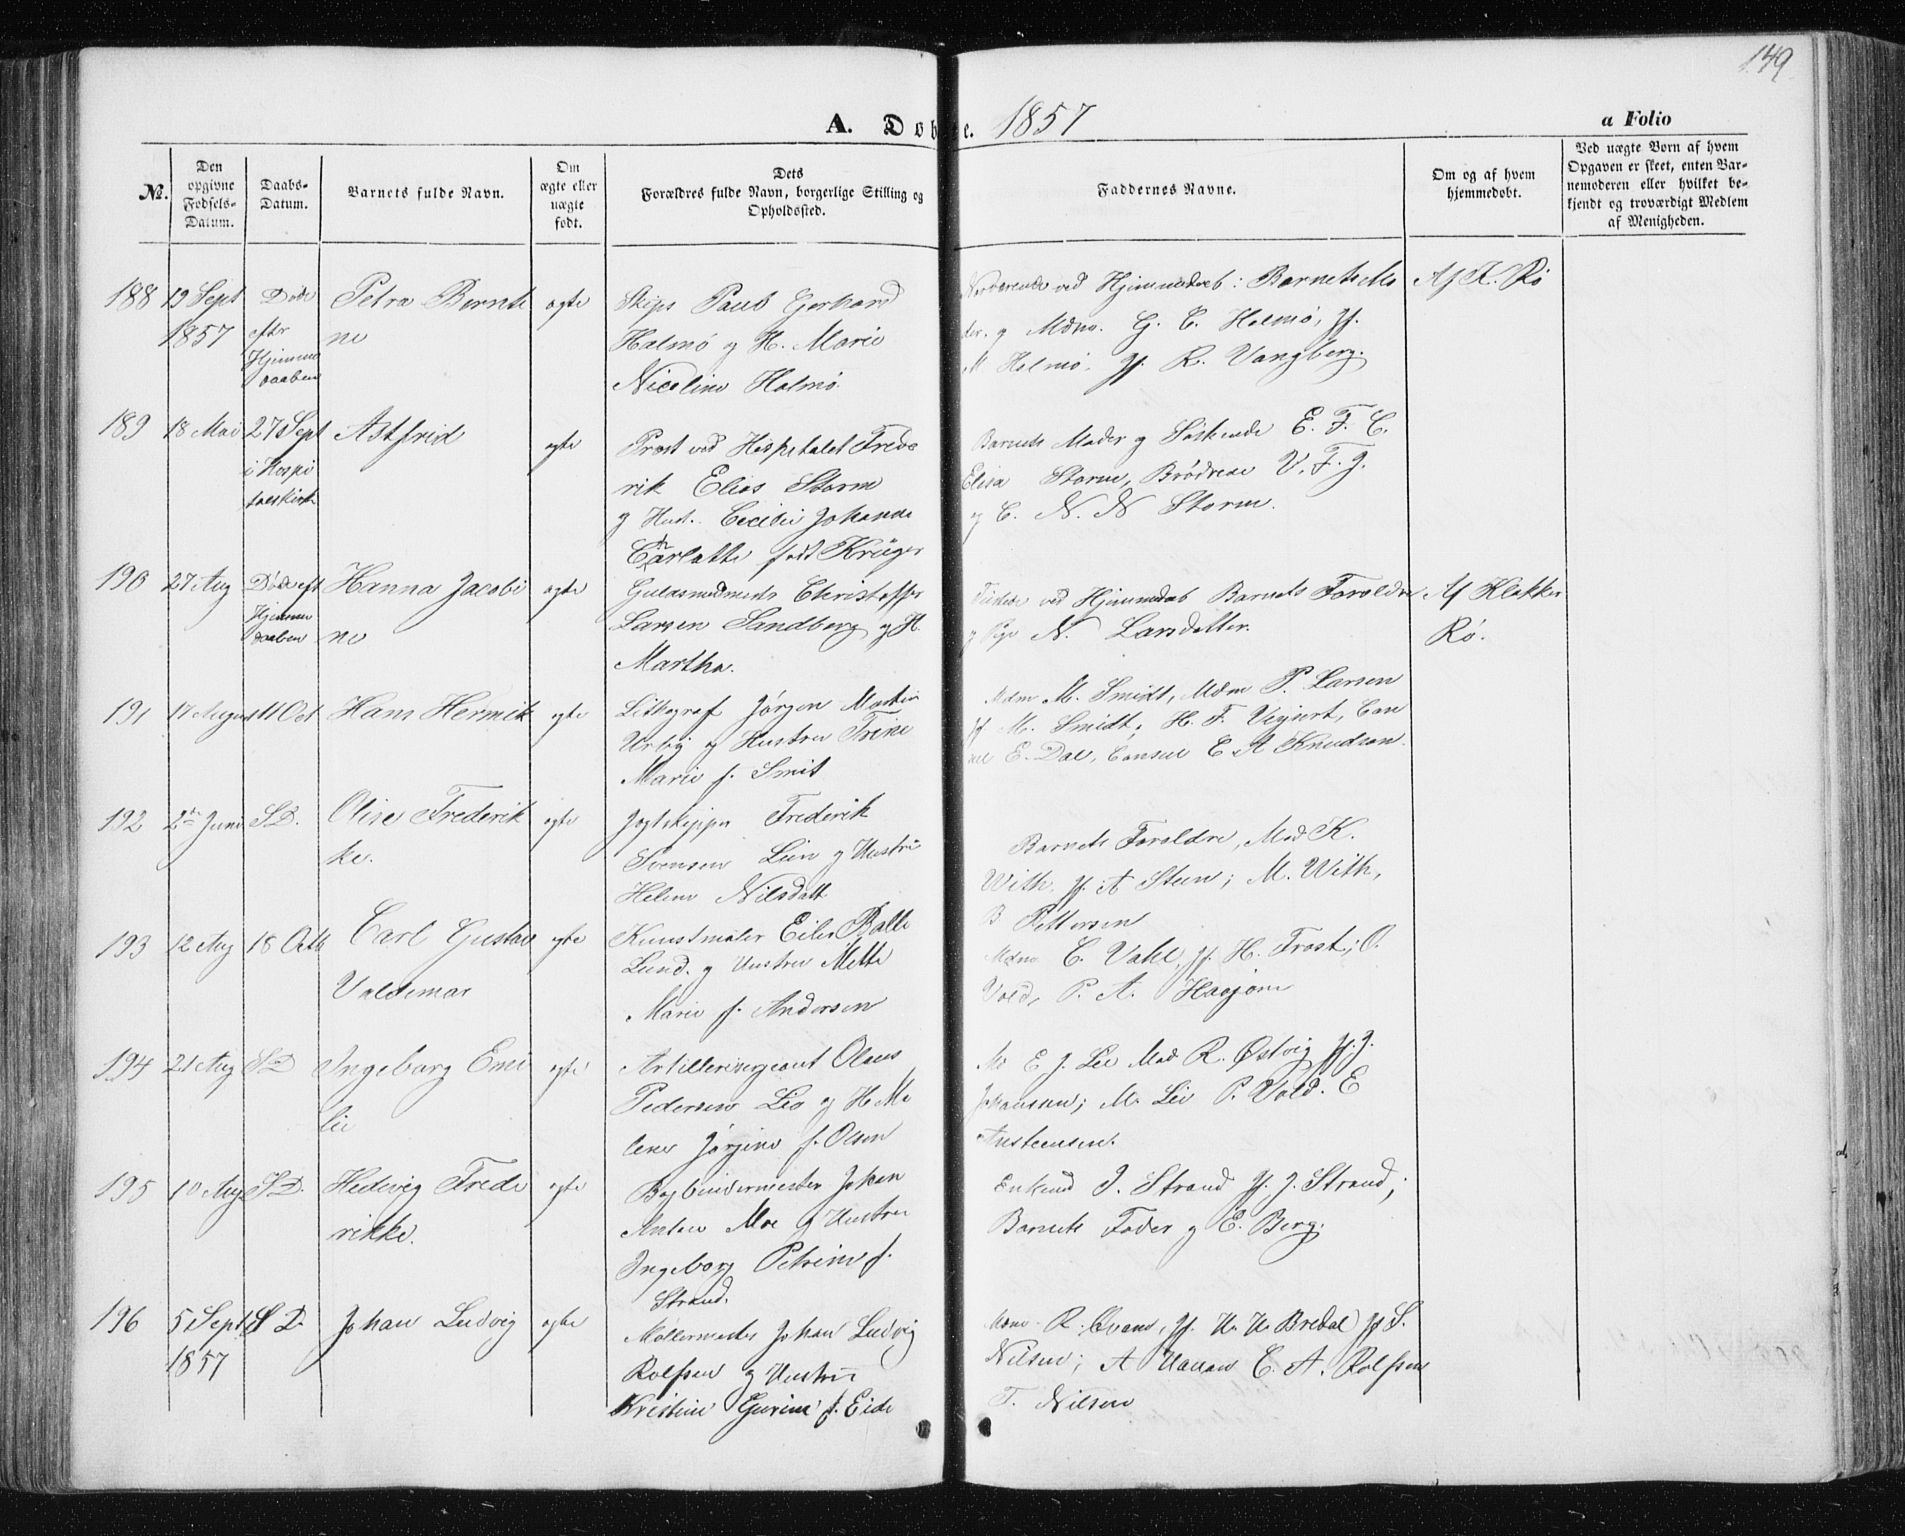 149
A. Døbte. 1857
a Folio
No.
Den opgivne Fødsels-Datum.
Daabs-Datum.
Barnets fulde Navn.
Om ægte eller uægte født.
Dets Forældres fulde Navn, borgerlige Stilling og Opholdssted.
Faddernes Navne.
Om og af hvem hjemmedøbt.
Ved uægte Børn af hvem Opgaven er skeet, enten Barnemoderen eller hvilket bekjendt og troværdigt Medlem af Menigheden.
188 19 Sept Døde Petra Bernti ægte Skips Paul Gerhard
1857 efter ne Halmø og H. Marie
Hjemme daaben Nicoline Holmø
ved Hjemmedaab: Barnets Mo
der. g Mdm. G. C. Holmø, Jf.
M Holmø, Jf. R. Vangberg.
Af K. Rø
189 18 Mai 27 Sept Astfrid ægte Præst ved Hospitalet Frede
i Hospi rik Elias Storm
talskirk g Hust. Cecilie Johanne
Carlotte født Krüger
Barnets Moder g Søskende E. F. C.
Elisa Storm, Brødrene V. F. J.
g C. N. N Storm.
190 27 Aug Døde eft Hanna Jacobi ægte Guldsmedmests Christoffer
Hjemme ne Larsen Sandberg g H.
daaben Martha.
ved Hjemmedaab Barnets Foroldre
g Pige N. Larsdatter.
Af Klokker
Rø.
191 17 August 11 Oct Hans Henrik ægte Lithograf Jørgen Martin
Urbÿ g Hustru Trine
Marie f. Smit
Mdm M. Smidt, Mdm P. Larsen
Jf M. Smidt; H. F. Vejnert, Con
sul E. Dal, Consul C. A Knudson.
192 2den Juni S.D. Olise Frederik ægte Jagtskipper Frederik
ke. Svensen Lien g Hustru
Helene Nilsdatt
Barnets Foroldre, Mad K.
With, Jf. A Steen; M. With,
B Pettersen
193 12 Aug 18 Octb Carl Gustav ægte Kunstmaler Eiler Balle
Valdemar Lund. g Hustru Mette
Marie f. Andersen
Mdm C. Vahl, Jf. H. Frost; O.
Vold, P. A.
194 21 Aug S D Ingeborg Emi ægte Artillerisergeant Olaus
lie Pedersen Lia g H. Ma
lene Jørgine f. Olsen
E. J. Lie Mad R. Østvig Jf. J.
Johansen; M. Lie P. Vold. E
Austeensen.
195 10 Aug S.D. Hedevig Frede ægte Bogbindermester Johan
rikke. Anton Moe g Hustru
Ingeborg Petrine f.
Strand.
Enkemd J. Strand Jf. J. Strand;
Barnets Fader g E. Berg.
196 5 Sept S D. Johan Ludvig ægte Møllermester Johan Ludvig
1857 Rolfsen g Hustru
Kristine Gurine f. Eide
R. Qvam, Jf. H. H. Bredal Jf S.
Nilsen; A Hansen C. A. Rolfsen
T. Nilsen